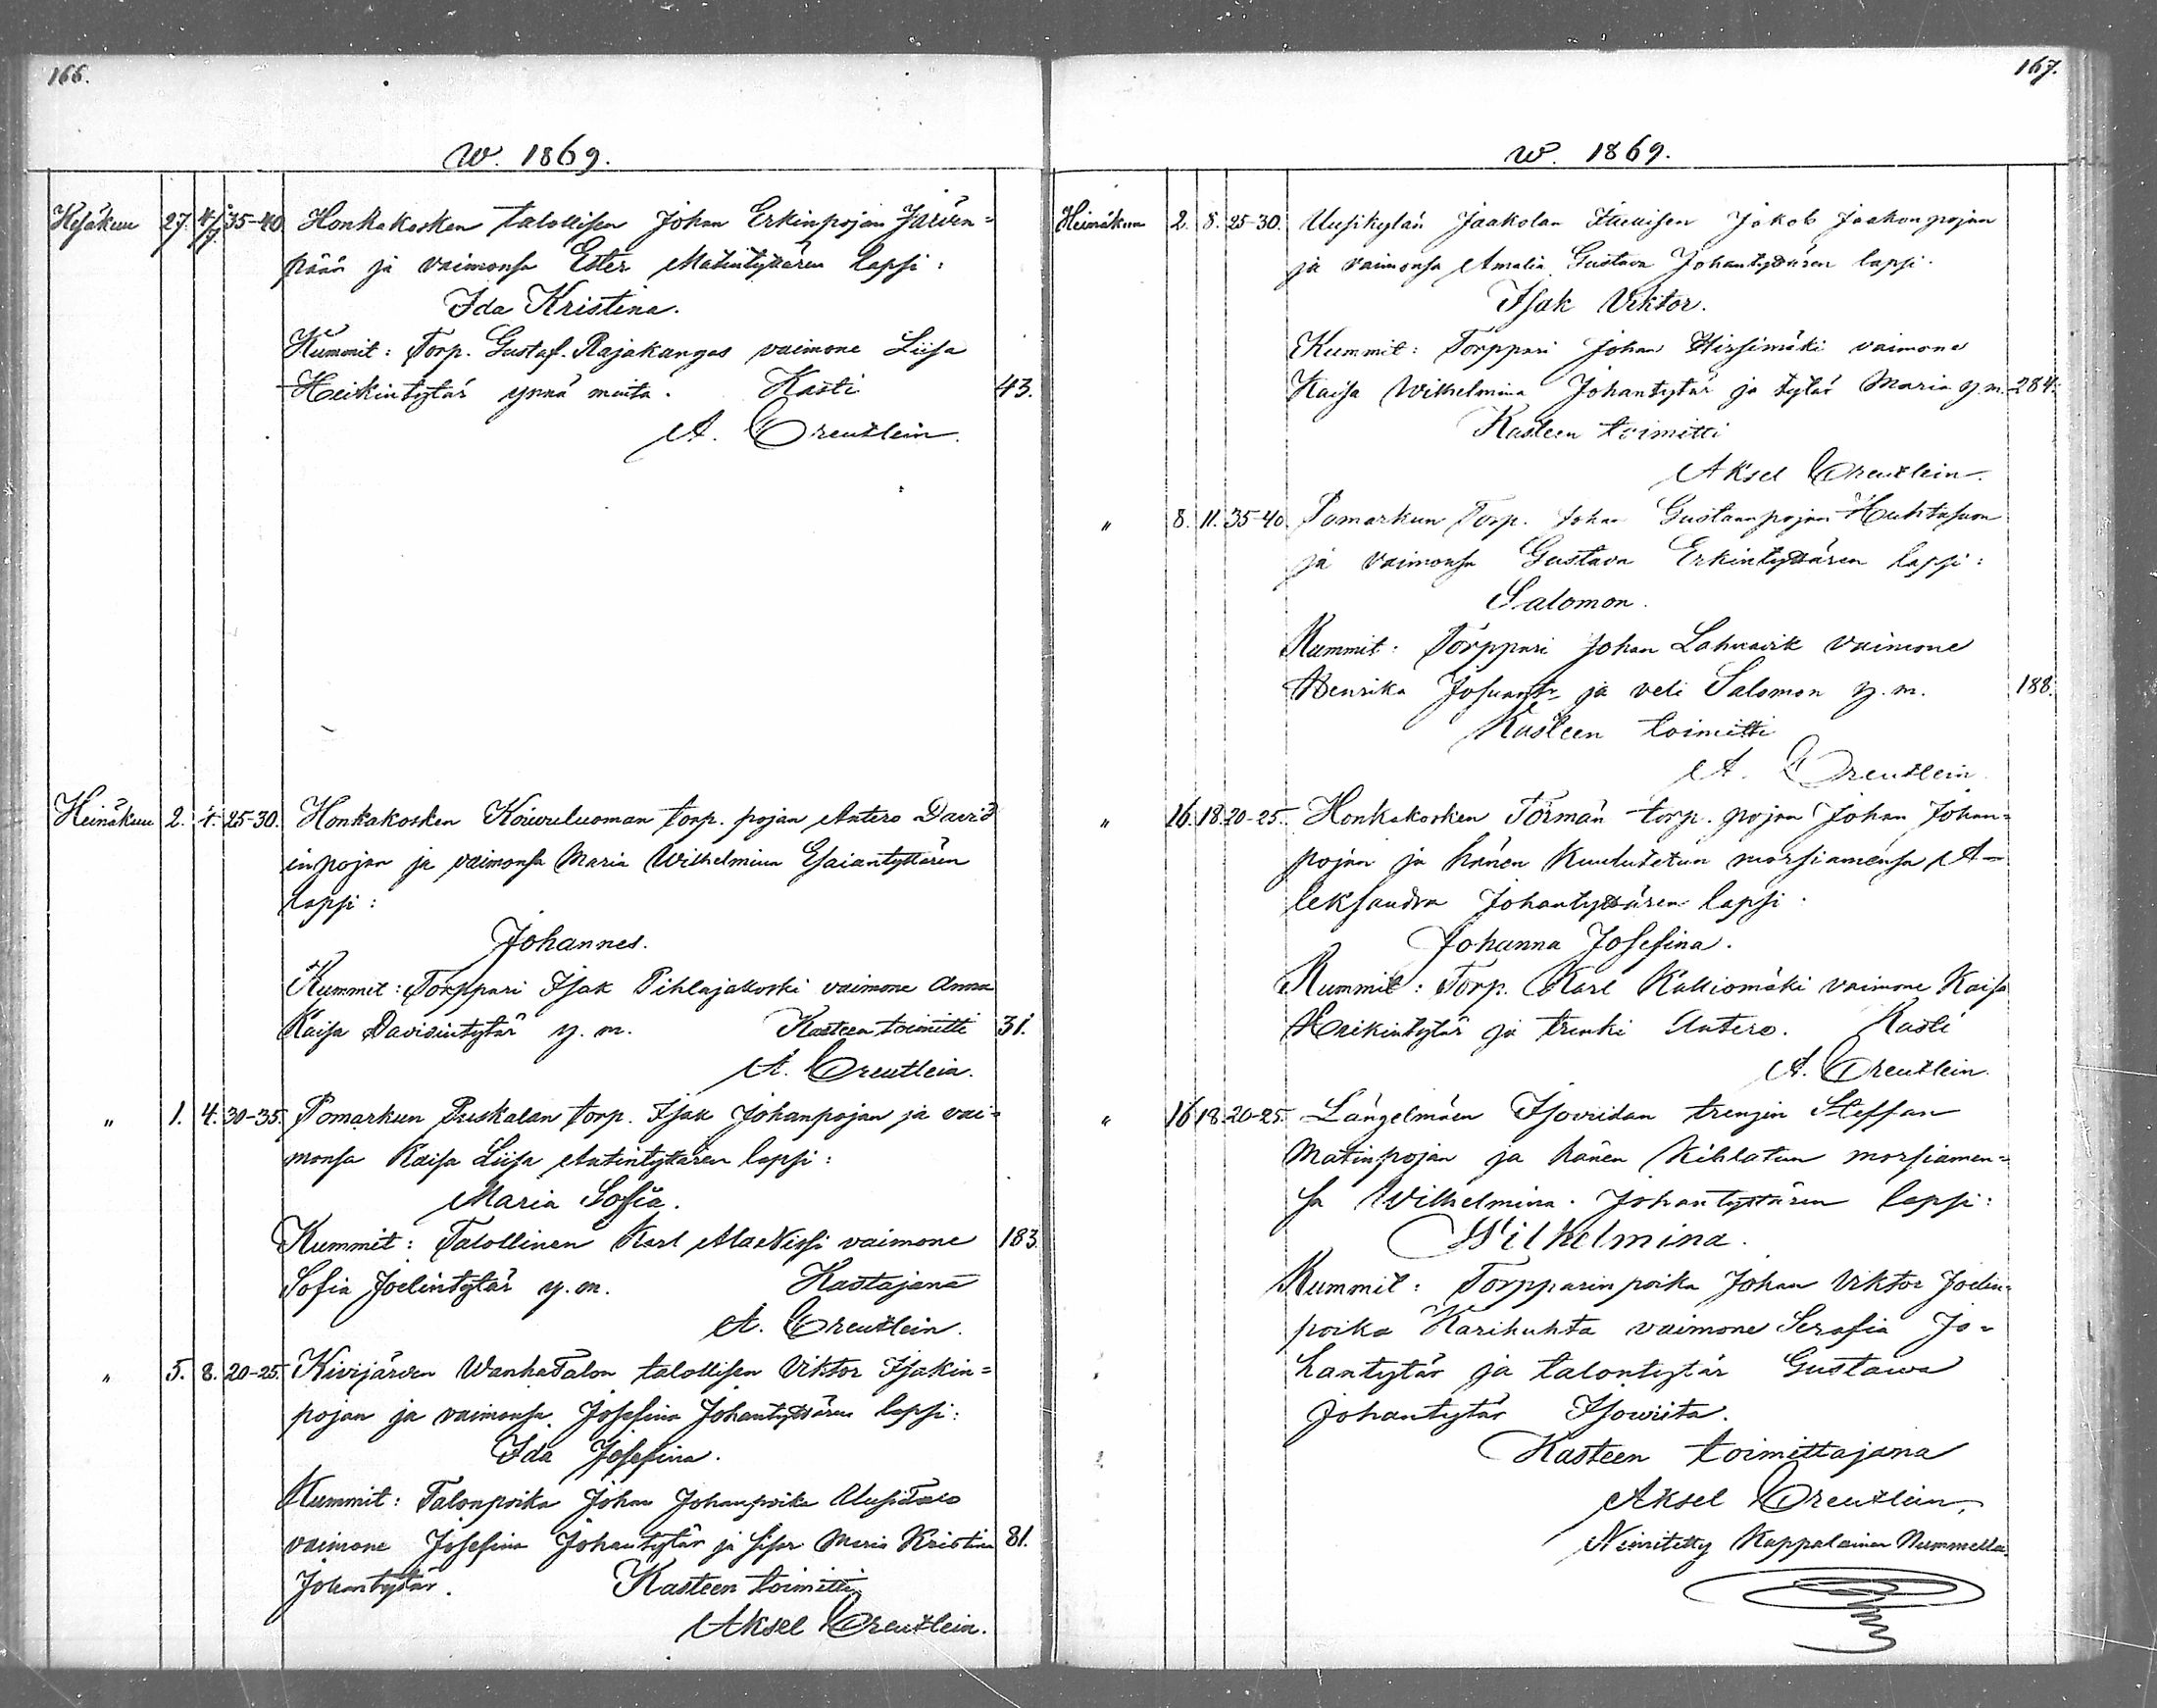 166.
W. 1869.
Kesäkuu 27. 4/7. 35-40 Honkakosken talollisen Johan Erkinpojan Järven=
pään ja vaimonsa Ester Matintyttären lapsi:
Ida Kristina.
Kummit: Torp. Gustaf. Rajakangas vaimone Liisa
Heikintytär ynnä muita. Kasti 43.
A. Creutlein.
Heinäkuu 2. 4. 25-30. Honkakosken Koivuluoman torp. pojan Antero David
inpojan ja vaimonsa Maria Wilhelmina Esaiantyttären
lapsi:
Johannes.
Kummit: Torppari Isak Pihlajakoski vaimone Anna
Kaisa Davidintytär y. m. Kasteen toimitti 31.
A. Creutlein.
" 1. 4. 30-35. Pomarkun Puskalan torp. Isak Johanpojan ja vai=
monsa Kaisa Liisa Antintyttären lapsi:
Maria Sofia.
Kummit: Talollinen Karl AlaNissi vaimone 183.
Sofia Joelintytär y. m. Kastajana
A. Creutlein.
" 5. 8. 20-25. Kivijärven WanhaTalon talollisen Viktor Isakin=
pojan ja vaimonsa Josefina Johantyttären lapsi:
Ida Josefina.
Kummit: Talonpoika Johan Johanpoika UusiTalo
vaimone Josefina Johantytär ja sisar Maria Kristina 81.
Johantytär. Kasteen toimitti
Aksel Creutlein.
167.
W. 1869.
Heinäkuu 2. 8. 25-30. Uusikylän Jaakolan Jakob Jaakonpojan
ja vaimonsa Amalia Gustava Johantyttären lapsi.
Isak Viktor.
Kummit: Torppari Johan Hirsimäki vaimone
Kaisa Wilhelmina Johantytär ja tytär Maria y. m. 284.
Kasteen toimitti
Aksel Creutlein.
" 8. 11. 35-40. Pomarkun Torp. Johan Gustaanpojan Huhtasuon
ja vaimonsa Gustava Erkintyttären lapsi:
Salomon.
Kummit: Torppari Johan vaimone
Henrika ja veli Salomon y. m. 188.
Kasteen toimitti
A. Creutlein
" 16. 18. 20-25. Honkakosken Törmän torp. pojan Johan Johan=
pojan ja hänen kuulutetun morsiamensa A-
leksandra Johantyttären lapsi.
Johanna Josefina.
Kummit: Torp. Karl Kalliomäki vaimone Kaisa
Heikintytär ja trenki Antero. Kasti
A. Creutlein.
" 16 18. 20-25. Längelmäen Isoviidan trengin Steffan
Matinpojan ja hänen kihlatun morsiamen=
sa Wilhelmina. Johantyttären lapsi:
Wilhelmina.
Kummit: Torpparinpoika Johan Viktor Joelin=
poika Karihuhta vaimone Serafia Jo=
hantytär ja talontytär Gustawa
Johantytär Isowiita.
Kasteen toimittajana
Aksel Creutlein,
Nimitetty Kappalainen Nummella.